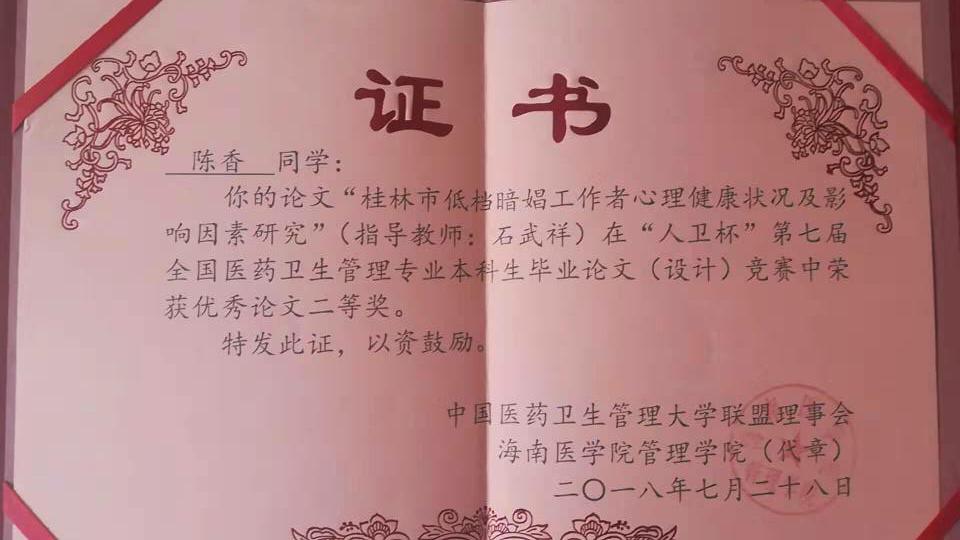 证书
陈香 同学：
你的论文“桂林市低档暗娼工作者心理健康状况及影
响因素研究”（指导教师：石武祥）在“人卫杯”第七届
全国医药卫生管理专业本科生毕业论文（设计）竞赛中荣
获优秀论文二等奖。
特发此证，以资鼓励。
中国医药卫生管理大学联盟理事会
海南医学院管理学院（代章）
二〇一八年七月二十八日